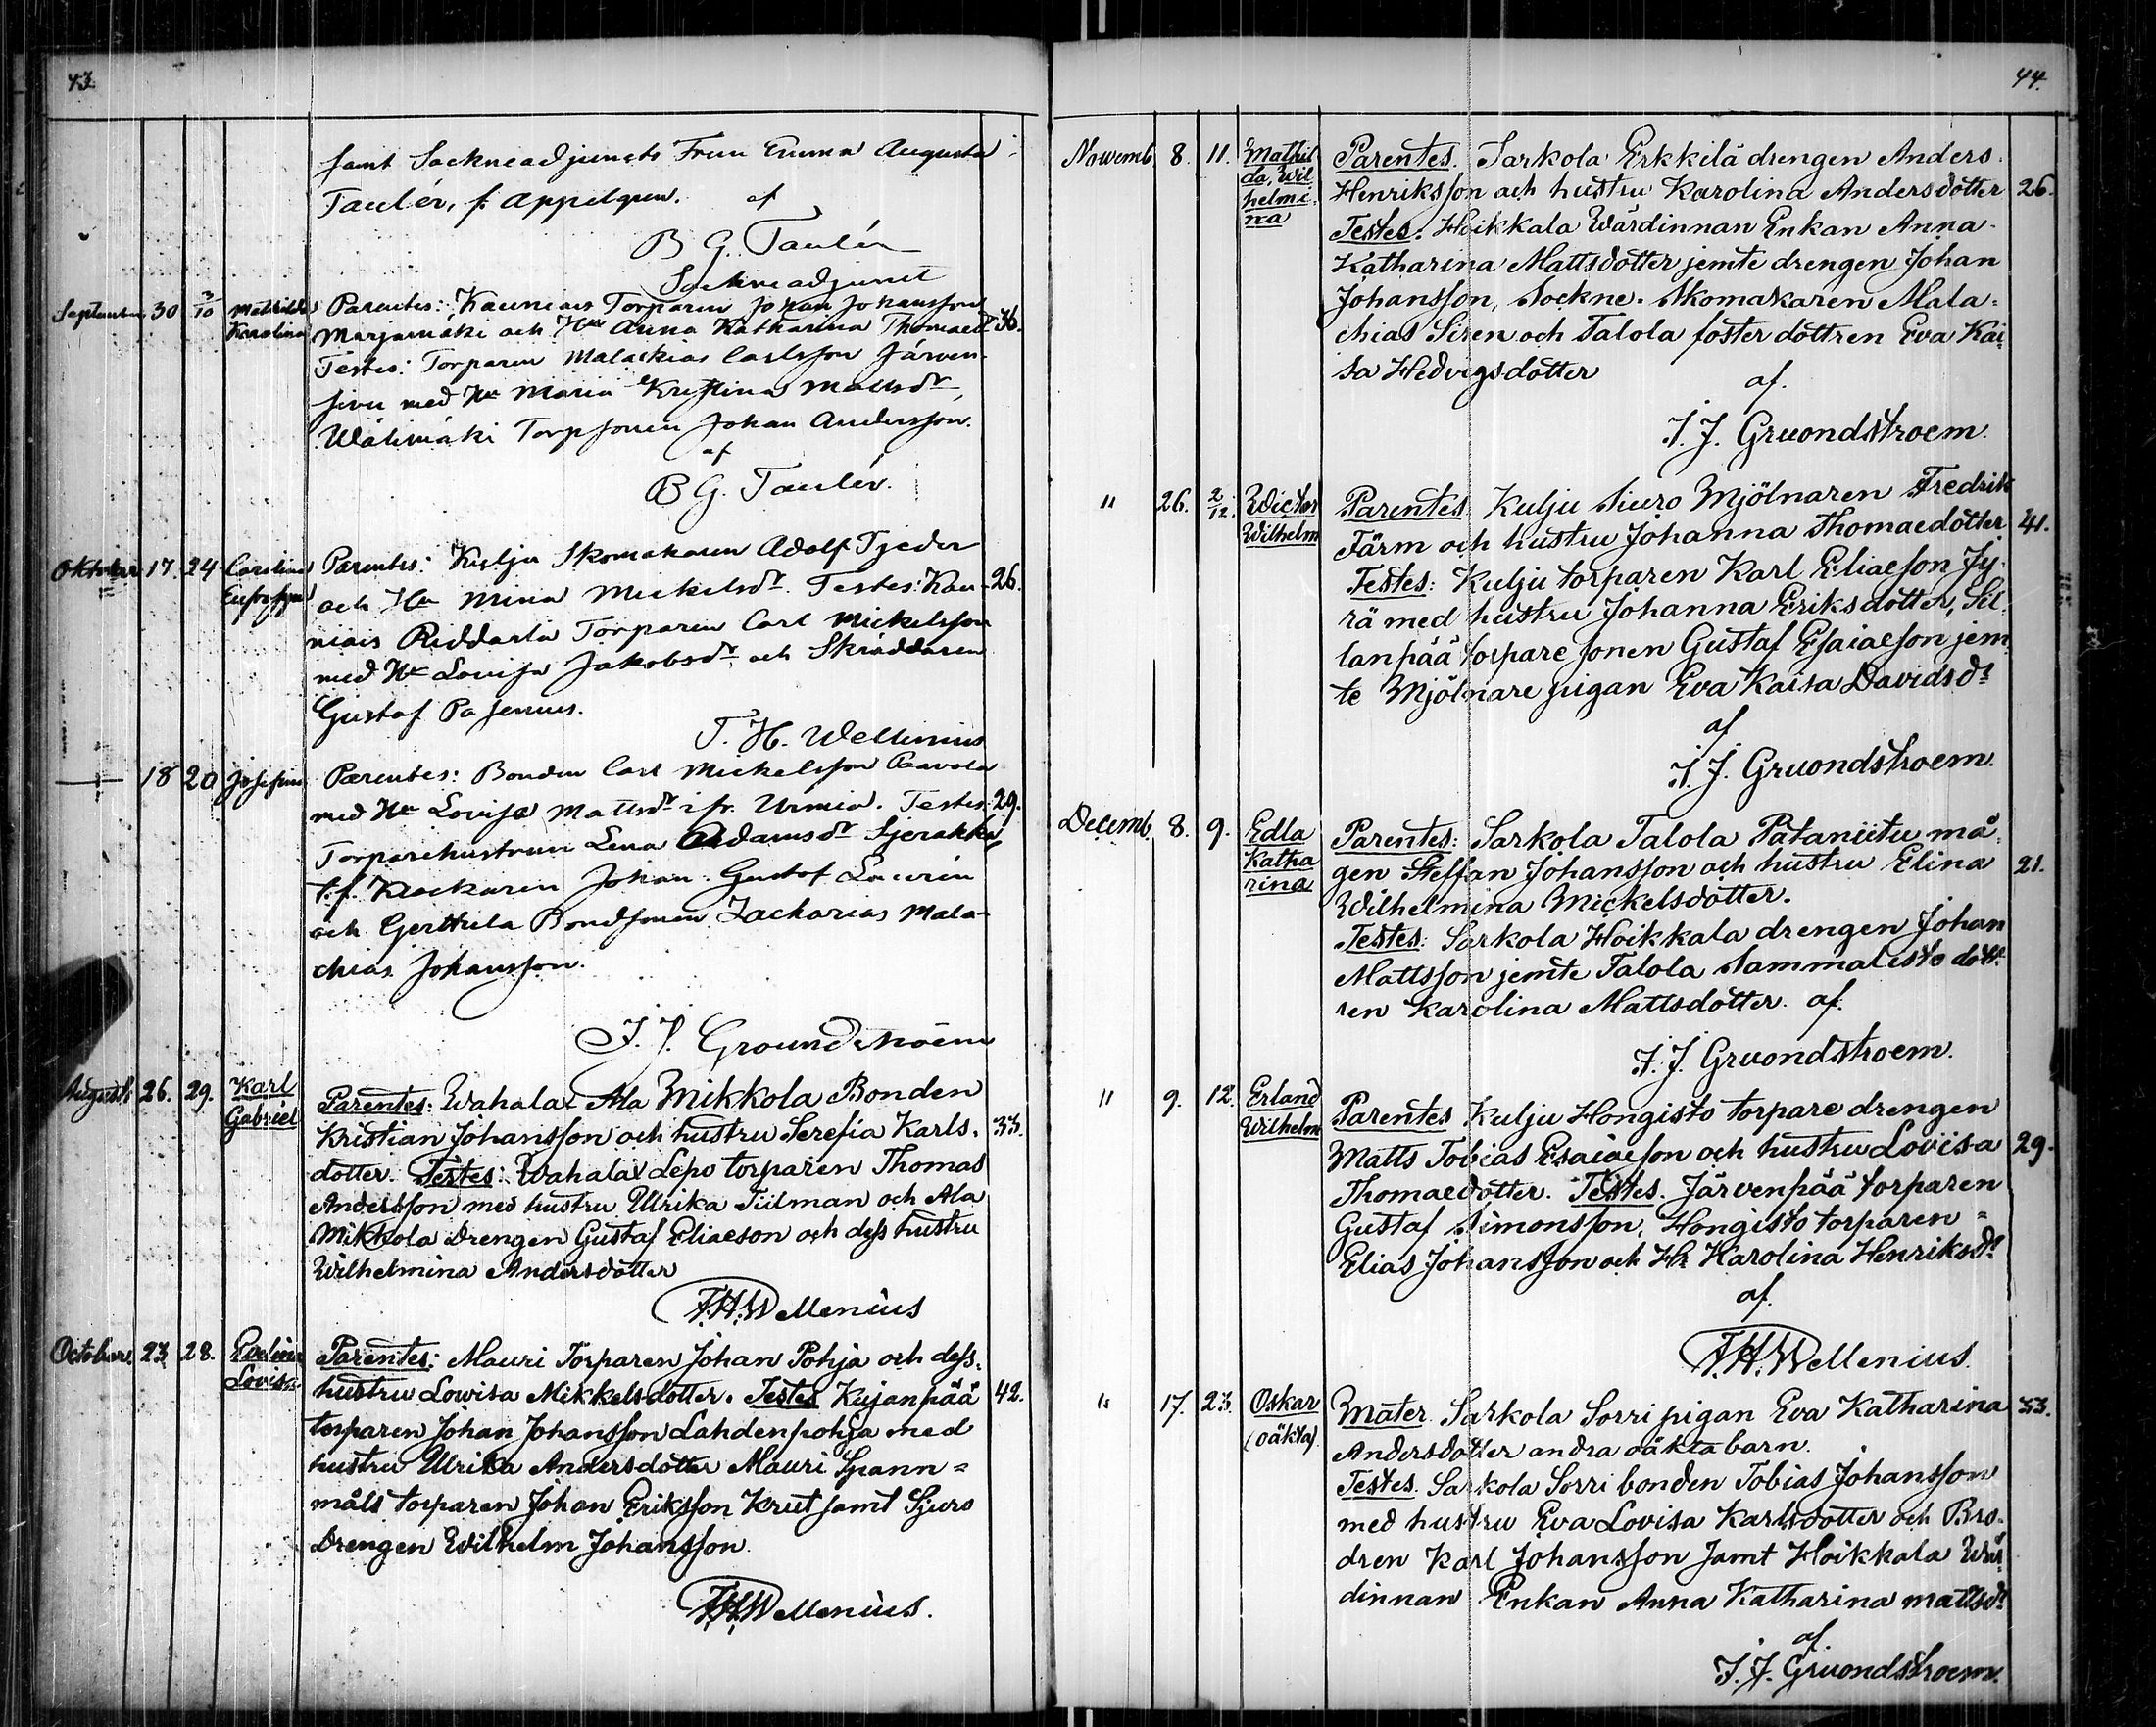 43.
samt Sockneadjuncts Frun Emma Augusta
Taulér, f. Appelgren. af
B G. Taulér
Sockneadjunct
September 30 3/10 Mathilda Parentes: Kauniais Torparen Johan Johansson
Karolina Marjamäki och Hu Anna Katharina Thomaedr 36.
Testes: Torparen Malackias Carlsson Järven-
sivu med Hu Maria Kristina Mattsdr,
Wälimäki Torpsonen Johan Andersson.
af
B G. Taulér.
Oktober 17. 24 Carolina Parentes: Kulju Skomakaren Adolf Tjeder
och Hu Mina Mickelsdr. Testes: Kau- 26.
niais Riddarla Torparen Carl Mickelsson
med Hu Lovisa Jakobsdr och Skräddaren
Gustaf Pasenius.
F. H. Wellenius
18 20 Josefina Parentes: Bonden Carl Mickelsson Paavola
med Hu Lovisa Mattsdr ifr. Urmia. Testes: 29.
Torparehustrun Lena Adamsdr Sjerakka
t.f. Klockaren Johan Gustof Laurén
och Gerttula Bondsonen Zacharias Mala-
chias Johansson.
J. J. Groundstroëm
Augusti 26. 29. Karl Parentes: Wahalax Ala Mikkola Bonden
Gabriel Kristian Johansson och hustru Serefia Karls. 33.
dotter. Testes: Wahalax Lepo torparen Thomas
Andersson med hustru Ulrika Tiilman och Ala
Mikkola Drengen Gustaf Eliaeson och dess hustru
Wilhelmina Andersdotter
F.H.Wellenius
October 23. 28. Evelina Parentes: Mauri Torparen Johan Pohja och dess.
Lovisa hustru Lowisa Mikkelsdotter. Testes Kujanpää 42.
torparen Johan Johansson Lahdenpohja med
hustru Ulrika Andersdotter Mauri Spann=
måls torparen Johan Eriksson Krut samt Sjuro
Drengen Wilhelm Johansson.
F.H.Wellenius.
44.
Novemb 8. 11. Mathil Parentes. Sarkola Erkkilä drengen Anders.
da, Wil Henriksson och hustru Karolina Andersdotter 26.
helmi. Testes. Hoikkala Wärdinnan Enkan Anna-
na Katharina Mattsdotter jemte drengen Johan
Johansson, Sockne. Skomakaren Mala=
chias Siren och Talola foster dottren Eva Kai=
sa Hedvigsdotter af.
J. J. Gruondstroem.
" 26. 2/12. Wictor Parentes Kulju Siuro Mjölnaren Fredrik
Wilhelm Färm och hustru Johanna Thomaedotter 41.
Testes: Kulju torparen Karl Eliaeson Jy-
rä med hustru Johanna Eriksdotter, Sil
lanpää torpare sonen Gustaf Esaiaeson jem
te Mjölnare pigan Eva Kaisa Davidsdr
af
J. J. Gruondstroem.
Decemb. 8. 9. Edla Parentes: Sarkola Talola Pätaniitu må
Katha gen Steffan Johansson och hustru Elina 21.
rina Wilhelmina Mickelsdotter.
Testes: Sarkola Hoikkala drengen Johan
Mattsson jemte Talola Sammalisto dott
ren Karolina Mattsdotter. af.
J. J. Gruondstroem.
" 9. 12. Erland Parentes Kulju Hongisto torpare drengen
Wilhelm Matts Tobias Esaiaeson och hustru Lovisa 29.
Thomaedotter. Testes. Järvenpää torparen
Gustaf Simonsson, Hongisto torparen=
Elias Johansson och Hr Karolina Henriksdr
af.
F.H.Wellenius.
" 17. 23. Oskar Mater. Sarkola Sorri pigan Eva Katharina 33.
(oäkta). Andersdotter andra oäkta barn.
Testes. Sarkola Sorri bonden Tobias Johansson
med hustru Eva Lovisa Karlsdotter och Bro.
dren Karl Johansson samt Hoikkala Wär
dinnan Enkan Anna Katharina mattsdr
af.
J. J. Gruondstroem.